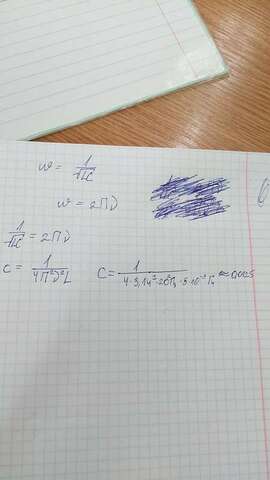 ω = 1/√LC
ω = 2πν
1/√LC = 2πν
C = 1/4π²ν²L C = 1/4·3,14²·20²Гц·8·10⁻³Гн ≈ 0,0025